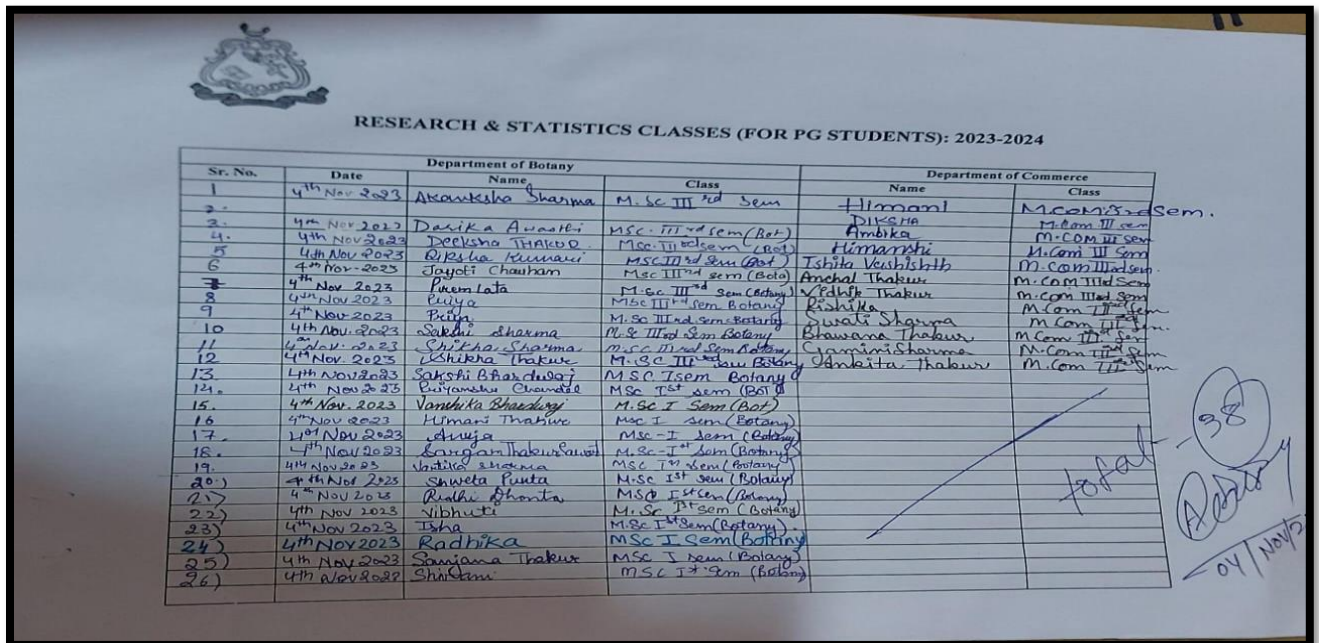 RESEARCH & STATISTICS CLASSES (FOR PG STUDENTS): 2023-2024
Department of Botany Department of Commerce
Sr. No. Date Name Class Name Class
1 4th Nov 2023 Akanksha Sharma M. Sc III rd Sem Himani M.COM 3rd Sem.
2. DIKSHA M.Com III sem
3. 4th Nov 2023 Darika Awasthi MSc. III rd sem (Bot) Ambika M.COM III sem
4. 4th Nov 2023 Deeksha THAKUR MSc. III rd sem (Bot) Himanshi M.Com III Sem
5 4th Nov 2023 Diksha Kumari MSc III rd Sem (Bot) Ishita Vashishth M.Com IIIrd sem.
6 4th Nov-2023 Jayoti Chauhan MSc III rd sem (Bota) Anchal Thakur M.Com IIIrd Sem
7 4th Nov 2023 Prem Lata M.Sc III rd Sem (Botany) Vidhik Thakur M.Com IIIrd Sem
8 4th Nov 2023 Priya MSc III rd sem Botany Rishika M.Com III rd Sem
9 4th Nov 2023 Priya M.Sc III rd Sem Botany Swati Sharma M Com III Sem.
10 4th Nov. 2023 Sakshi Sharma M.Sc III rd Sem Botany Bhawana Thakur M Com III rd Sem
11 4th Nov. 2023 Shikha Sharma M.Sc III rd Sem Botany Yamini Sharma M.Com III rd Sem
12 4th Nov. 2023 Thakur M.Sc III rd Sem Botany Ankita Thakur M.Com III rd Sem
13. 4th Nov 2023 Sakshi Bhardwaj MSC I sem Botany
14. 4th Nov 2023 Priyanshu Chandel MSc Ist sem (BOT)
15. 4th Nov. 2023 Vanshika Bhardwaj M.Sc I Sem (Bot)
16 4th Nov 2023 Himani Thakur Msc I sem (Botany)
17. 4th Nov 2023 Anuja Msc-I Sem (Botany)
18. 4th Nov 2023 Sargam Thakur M.Sc-Ist Sem (Botany)
19. 4th Nov 2023 Vatika sharma MSc Ist Sem (Botany)
20.) 4th Nov 2023 Shweta Punta M.Sc Ist sem (Botany)
21) 4th Nov 2023 Ridhi Dhonta MSc Ist sem (Botany)
22) 4th Nov 2023 Vibhuti M.Sc Ist sem (Botany)
23) 4th Nov 2023 Isha M.Sc Ist Sem (Botany).
24) 4th Nov 2023 Radhika MSc I Sem (Botany)
25) 4th Nov 2023 Sanjana Thakur MSc I sem (Botany)
26) 4th Nov 2023 Shivani MSc Ist Sem (Botany)
total - 38
04/Nov/2